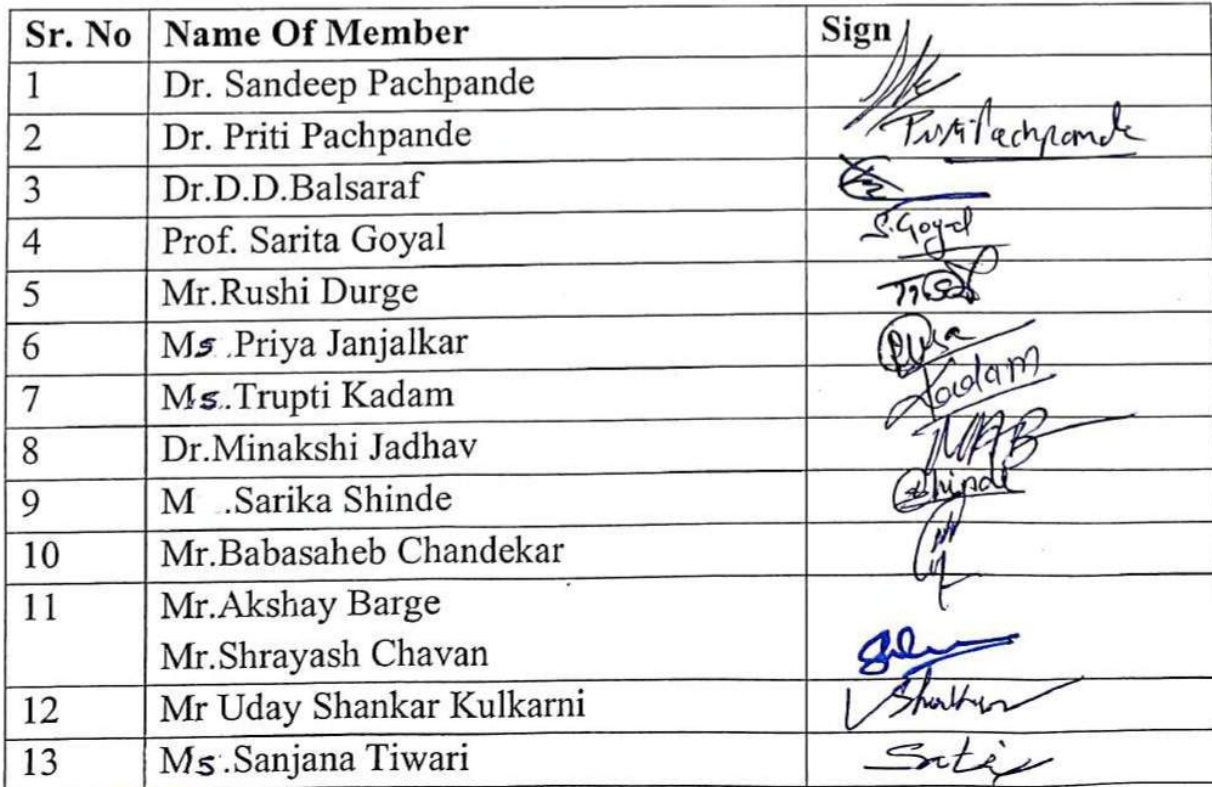 Sr. No Name Of Member Sign
1 Dr. Sandeep Pachpande
2 Dr. Priti Pachpande Priti Pachpande
3 Dr.D.D.Balsaraf
4 Prof. Sarita Goyal S.Goyal
5 Mr.Rushi Durge
6 Ms .Priya Janjalkar
7 Ms..Trupti Kadam Kadam
8 Dr.Minakshi Jadhav
9 M .Sarika Shinde Shinde
10 Mr.Babasaheb Chandekar
11 Mr.Akshay Barge
Mr.Shrayash Chavan
12 Mr Uday Shankar Kulkarni
13 Ms.Sanjana Tiwari